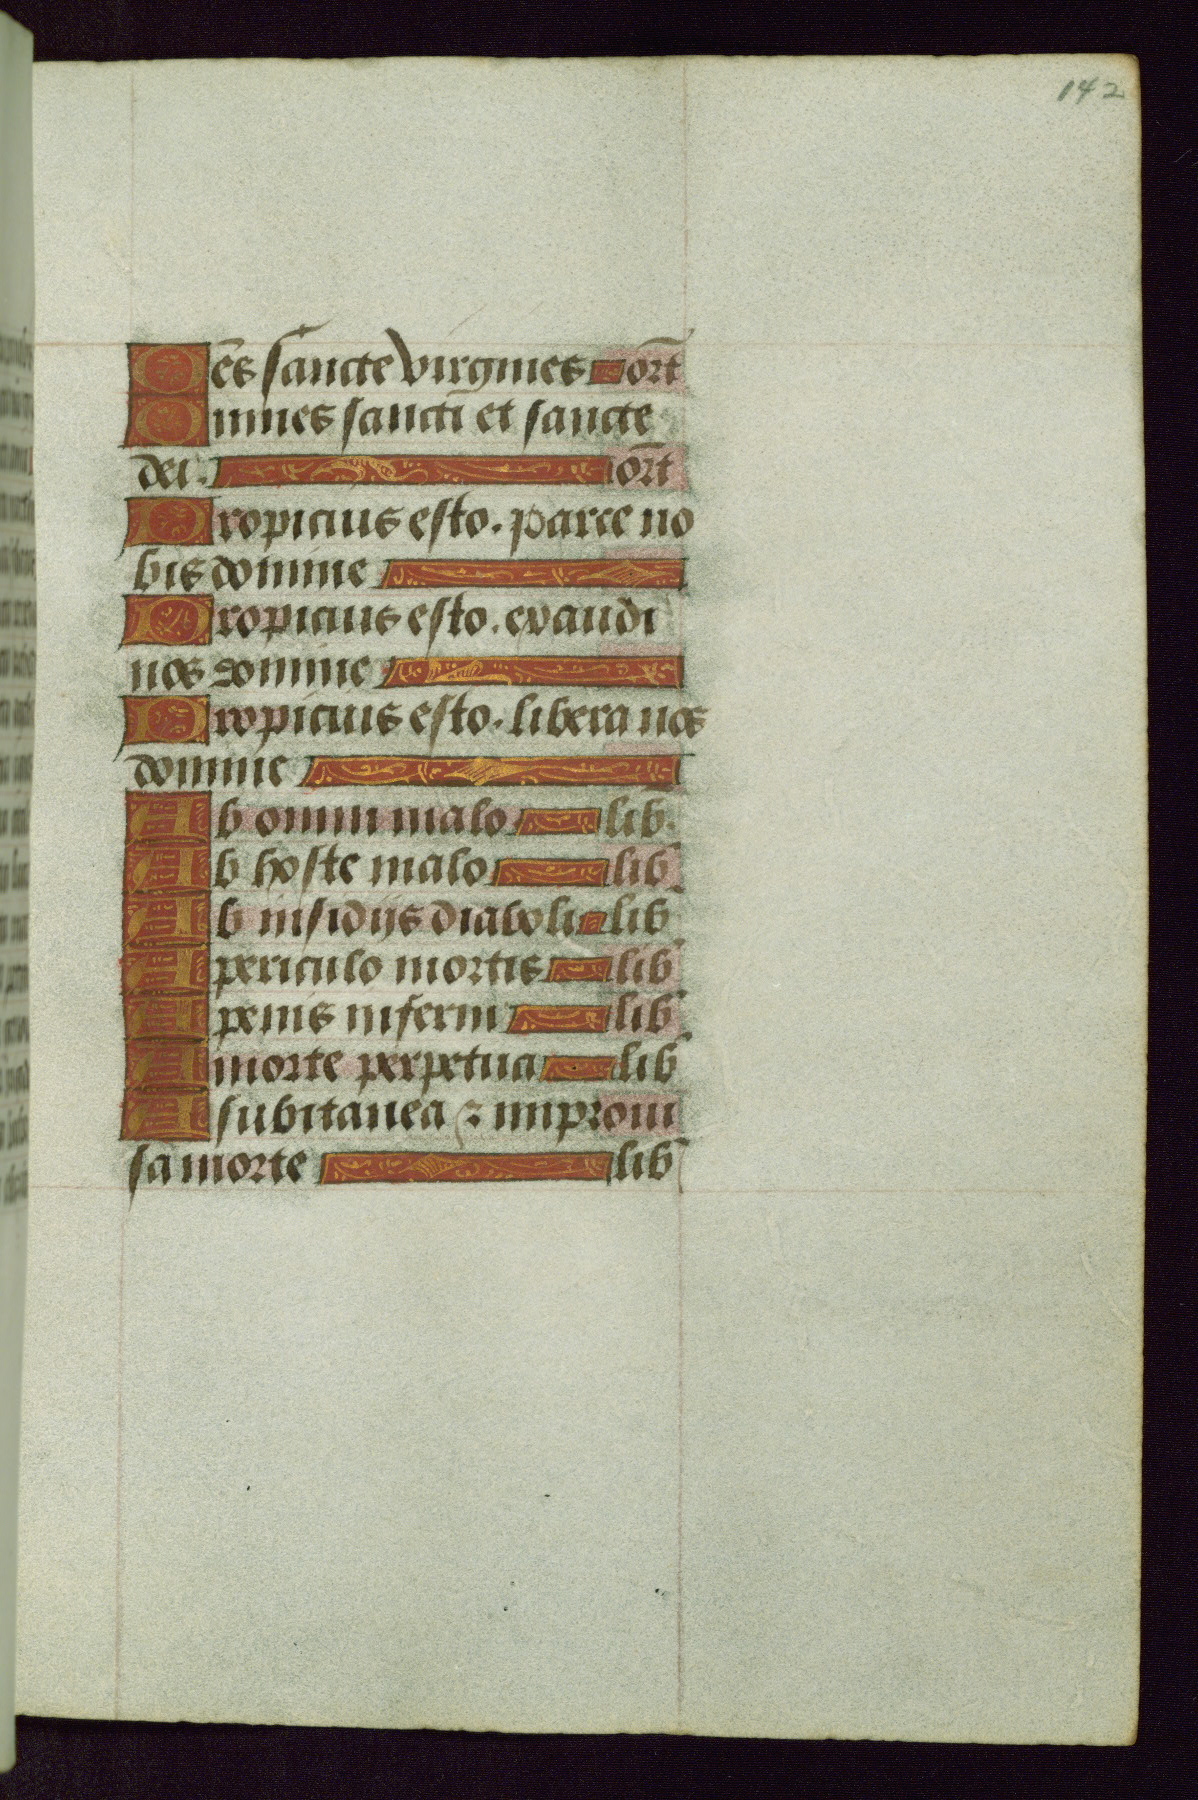 142
Oēs sancte virgines or̄t
Omnes sancti et sancte
dei. or̄t
Propicius esto. parce no
bis domine
Propicius esto. exaudi
nos domine
Propicius esto. libera nos
domine
Ab omni malo lib.
Ab hoste malo lib
Ab insidijs diaboli lib
A periculo mortis lib
A penis inferni lib
A morte perpetua lib
A subitanea ⁊ improui
sa morte lib